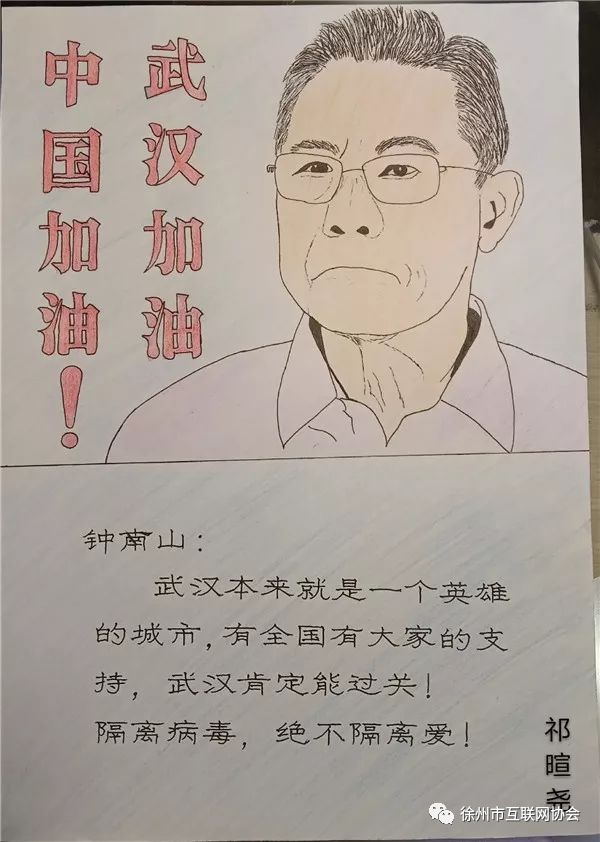 武汉加油
中国加油！
钟南山：
武汉本来就是一个英雄
的城市，有全国有大家的支
持，武汉肯定能过关！
隔离病毒，绝不隔离爱！
祁暄尧
徐州市互联网协会